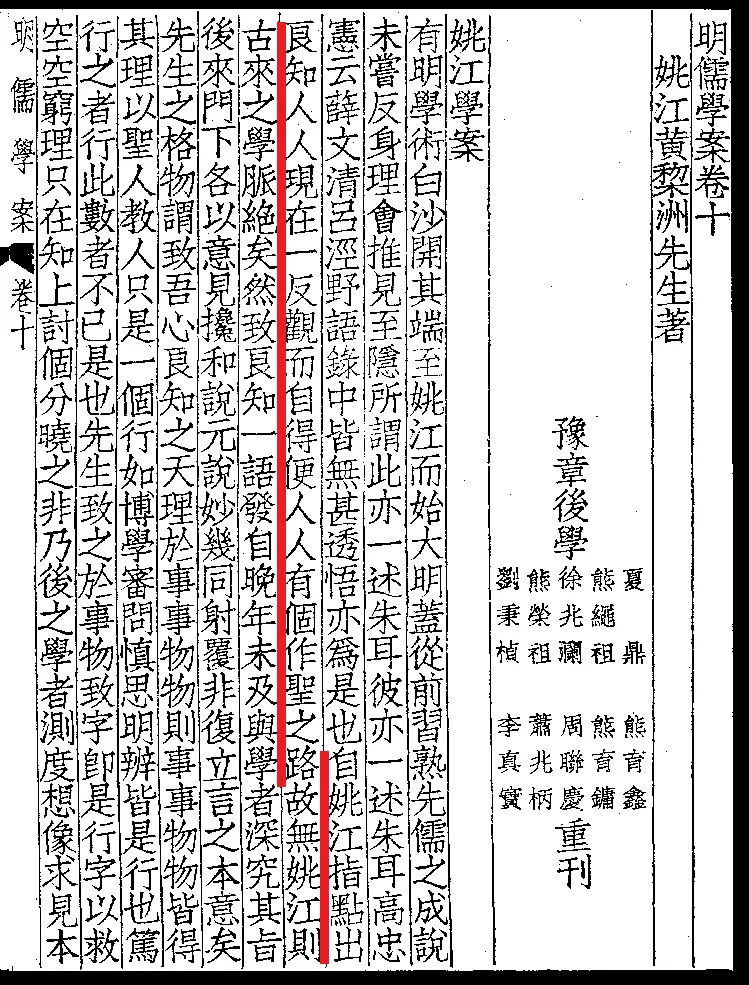 明儒學案卷十
姚江黃黎洲先生著
豫章後學
夏鼎 熊育鑫
熊繩祖 熊育鏞
徐兆瀾 周聯慶
熊榮祖 蕭兆柄
劉秉楨 李真寶
重刊
姚江學案
有明學術白沙開其端至姚江而始大明蓋從前習熟先儒之成說
未嘗反身理會推見至隱所謂此亦一述朱耳彼亦一述朱耳高忠
憲云薛文清呂涇野語錄中皆無甚透悟亦為是也自姚江指點出
良知人人現在一反觀而自得便人人有個作聖之路故無姚江則
古來之學脈絕矣然致良知一語發自晚年未及與學者深究其旨
後來門下各以意見攙和說元說妙幾同射覆非復立言之本意矣
先生之格物謂致吾心良知之天理於事事物物則事事物物皆得
其理以聖人教人只是一個行如博學審問慎思明辨皆是行也篤
行之者行此數者不已是也先生致之於事物致字卽是行字以救
空空窮理只在知上討個分曉之非乃後之學者測度想像求見本
明儒學案 卷十